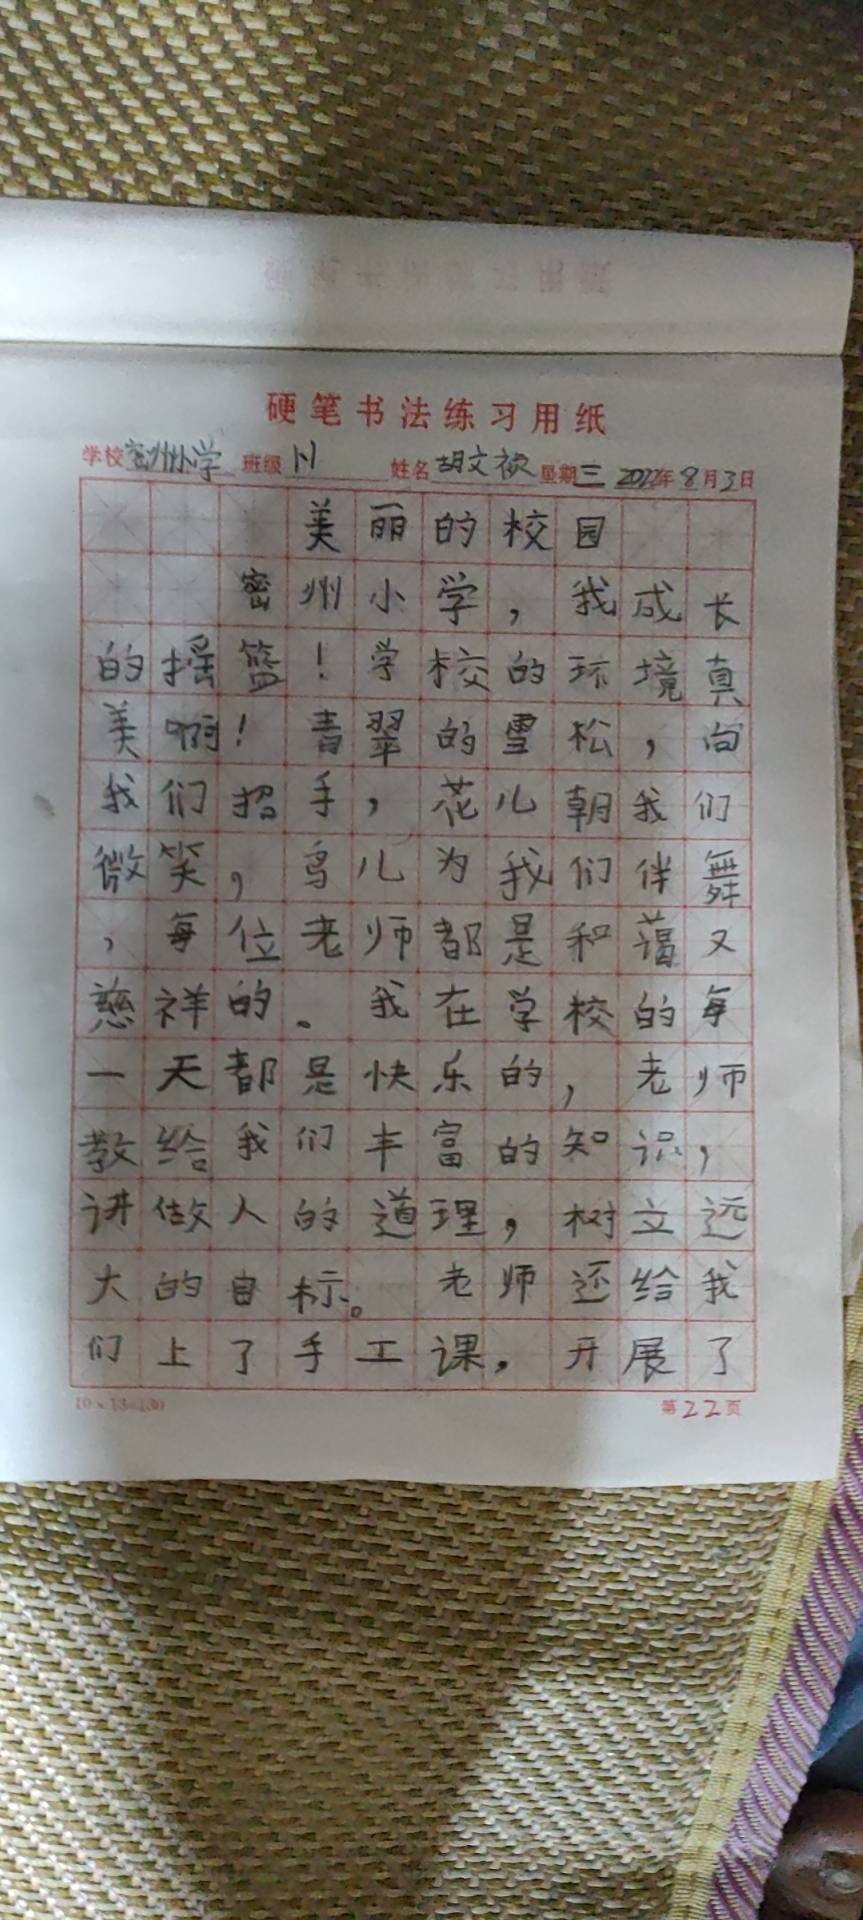 硬笔书法练习用纸
学校密州小学 班级1.1 姓名胡文 星期三 2022年8月3日
美丽的校园
密州小学，我成长
的摇篮！学校的环境真
美啊！青翠的雪松，向
我们招手，花儿朝我们
微笑，鸟儿为我们伴舞
，每位老师都是和蔼又
慈祥的。我在学校的每
一天都是快乐的，老师
教给我们丰富的知识，
讲做人的道理，树立远
大的目标。老师还给我
们上了手工课，开展了
10×13=130 第22页